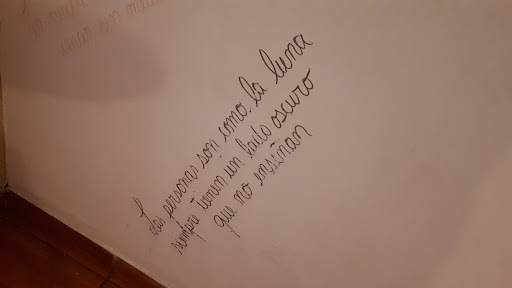 Las personas son como la luna
siempre tienen un lado oscuro
que no enseñan